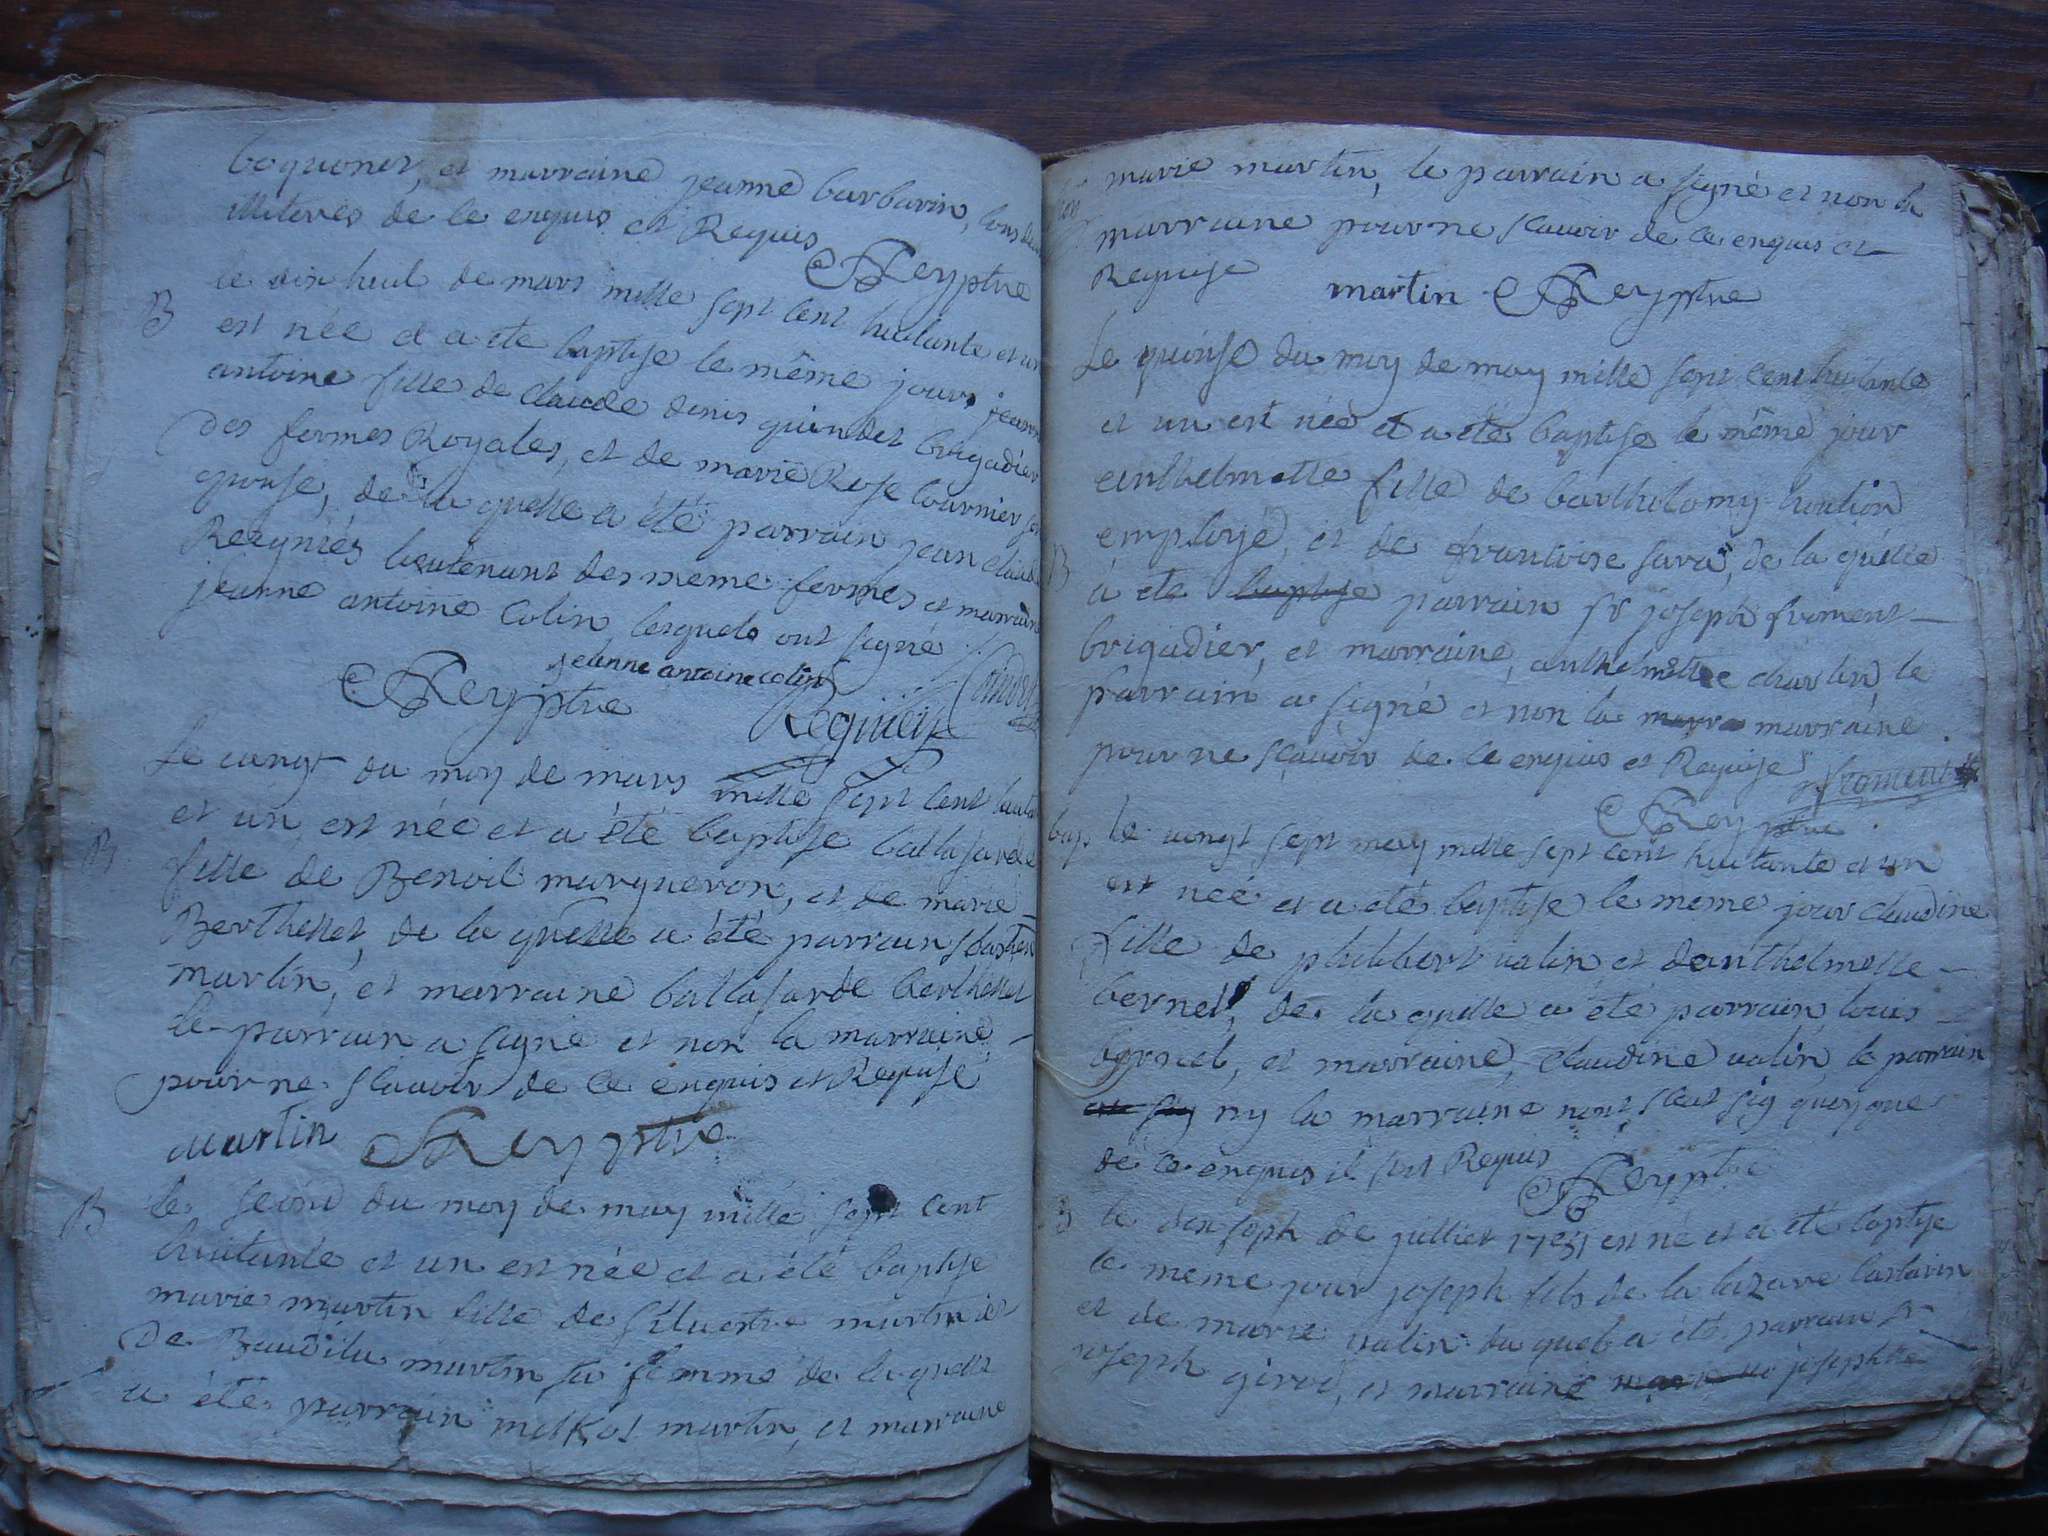 boquonet, et marraine jeanne barbarin, tous deux
illiteres de ce enquis et Requis
Reyptre
B
le dix huit de mars mille sept cent huitante et un
est née et a ete baptise le même jour, jeanne
antoine fille de claude denis guindet brigadier
des fermes Royales, et de marie Rose tournier son
epouse, de la quelle a été parrain jean claude
lieutenant des meme fermes et marraine
jeanne antoine Colin lesquels ont signé
jeanne antoine colin
Reyptre
Le vingt du moy de mars mille sept cent huitante
B
et un est née et a été baptise ballasarde
fille de Benoit marqueron, et de marie
Berthellet, de la quelle a été parrain sbastien
martin, et marraine ballasarde berthellet
le parrain a signé et non la marraine
pour ne scavoir de ce enquis et Requise
martin Reyptre
B
le second du moy de may mille sept cent
huitante et un est née et a été baptise
marie martin fille de silvestre martin et
de Baudilu martin sa femme de la quelle
a été parrain melkol martin, et marraine
marie martin, le parrain a signé et non la
marraine pour ne scavoir de ce enquis et
Requise
martin Reyptre
Le quinse du moy de may mille sept cent huitante
et un est née et a été baptise le même jour
anthelmette fille de bartholomy
employé, et de francoise sara, de la quelle
B
a ete baptise parrain sr joseph froment
brigadier, et marraine, anthelmette charlin, le
parrain a signé et non la marra marraine
pour ne scavoir de ce enquis et Requise
froment
Reyptre
bap. le vingt sept may mille sept cent huitante et un
est née et a été baptise le meme jour claudine
fille de philibert valin et danthelmette
bernet, de la quelle a été parrain, louis
bernet, et marraine, claudine valin, le parrain
ny la marraine nont sceut sig quoyque
de ce enquis et Requis
Reyptre
B
le dix sept de julliet 1781 est né et a été baptise
le meme jour joseph fils de la lazare barbarin
et de marie valin du quel a été parrain sr
joseph girod, et marraine josephte